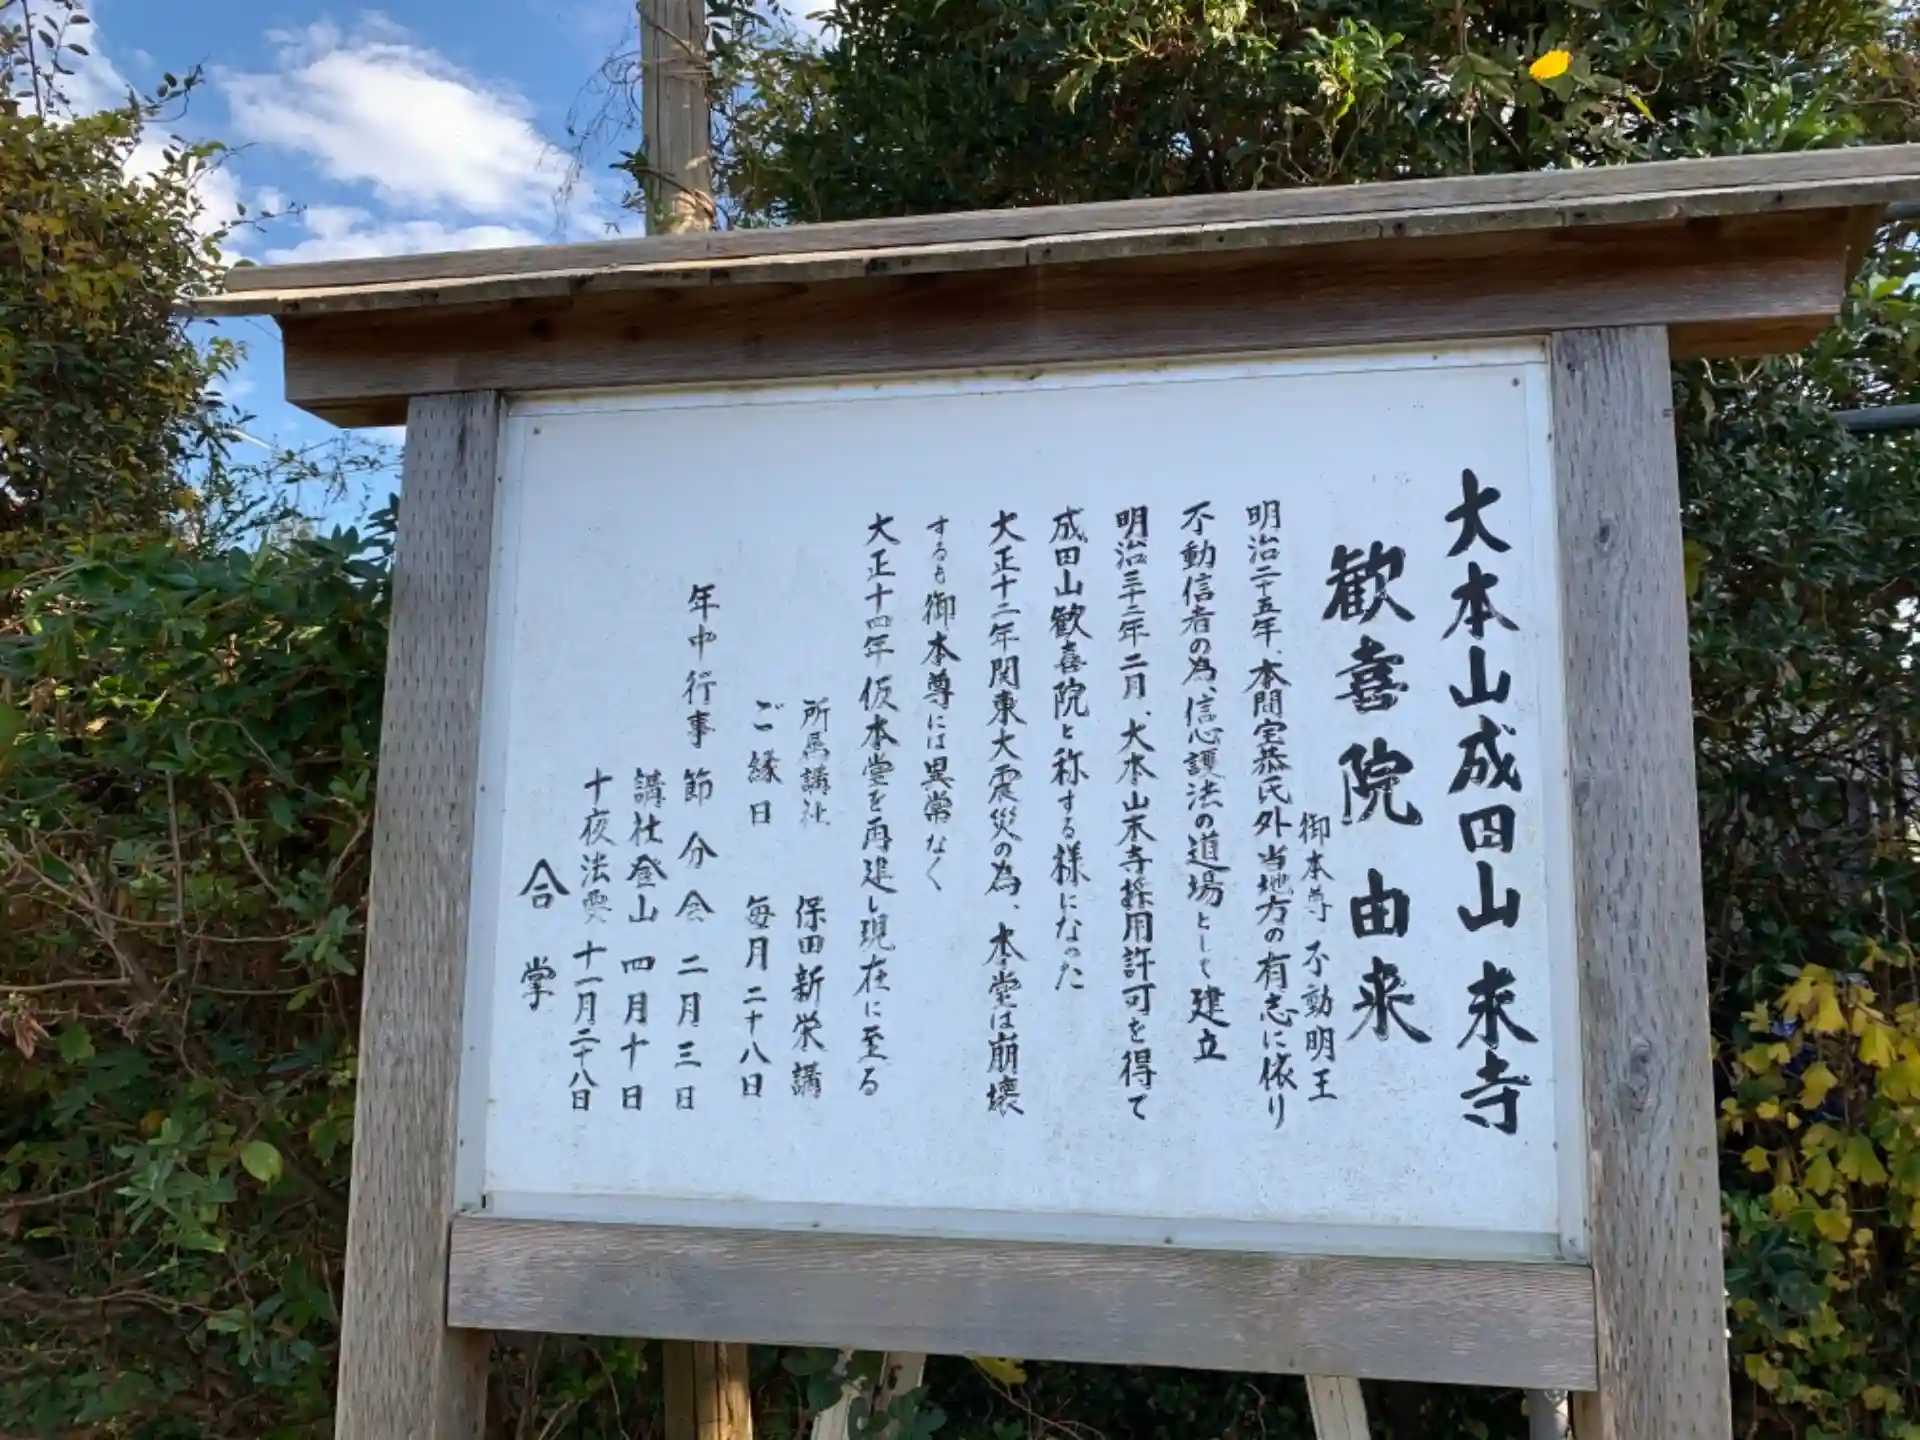 大本山成田山末寺
歓喜院由来
御本尊 不動明王
明治二十五年、本間宅恭氏外当地方の有志に依り
不動信者の為、信心護法の道場として建立
明治三十二年二月、大本山末寺採用許可を得て
成田山歓喜院と称する様になった
大正十二年関東大震災の為、本堂は崩壊
するも御本尊には異常なく
大正十四年仮本堂を再進し現在に至る
所属講社 保田新栄講
ご縁日 毎月二十八日
年中行事 節分会 二月三日
講社登山 四月十日
十夜法要 十一月二十八日
合掌